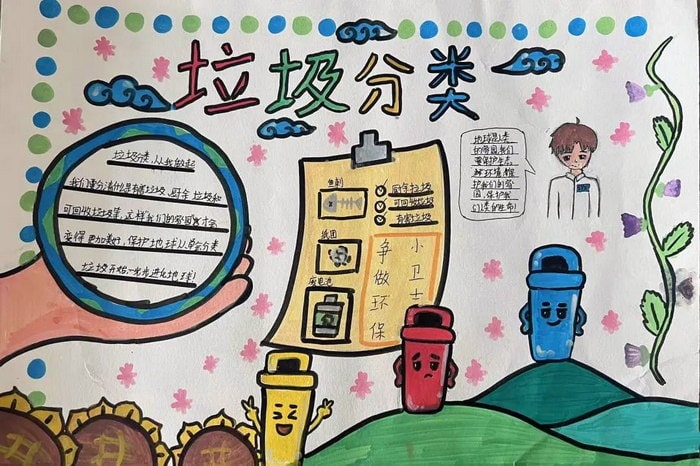 垃圾分类
垃圾分类,从我做起
我们要分清什么是有害垃圾,厨余垃圾和
可回收垃圾等,这样我们的家园才会
变得更加美好,保护地球从垃圾分类
垃圾开始,一步步进化地球!
鱼刺
纸团
废电池
厨余垃圾
可回收垃圾
有害垃圾
争做环保
小卫士
地球是人类
的家园,我们
要保护生态
环境,保
护我们的家
园,保护我
们美的生命!